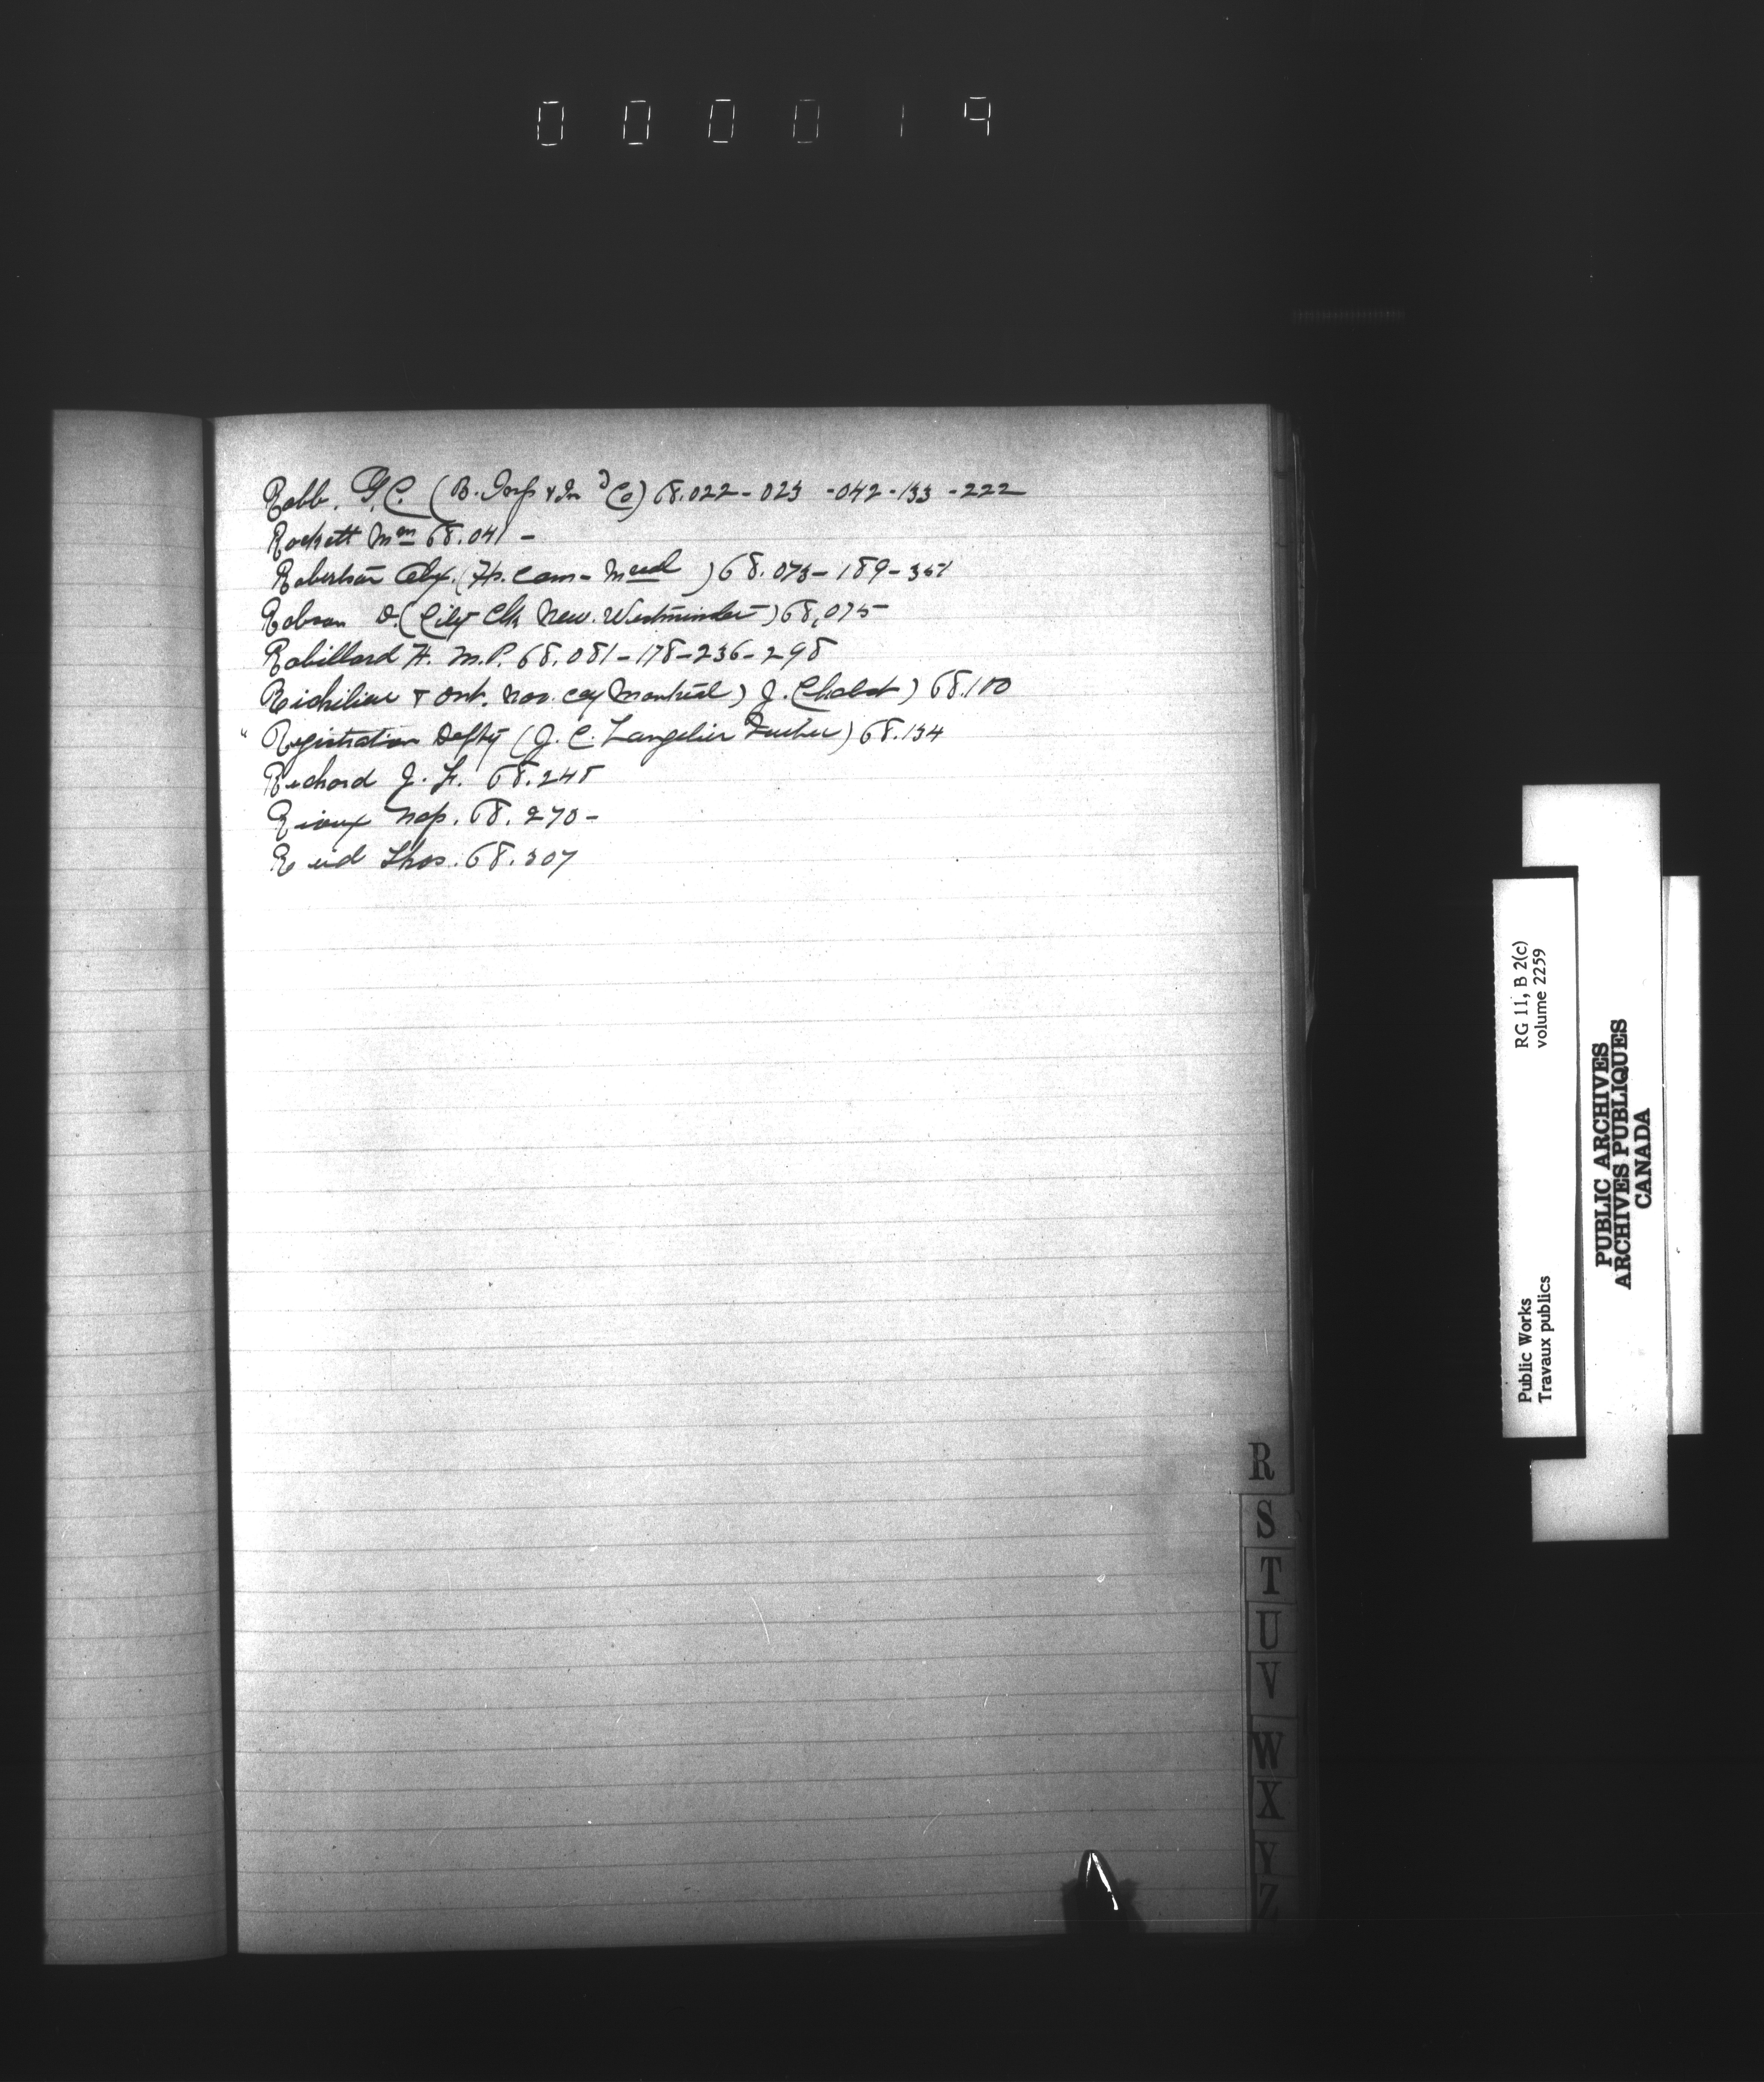 000019
Robb. G.C. (B. Insp & In d Co) 68.022-023-042-133-222
Rockett Wm 68.041-
Robertson Alex. (H. Com- Mreal) 68.073-189-351
Robson D. (City Clk New. Westminster) 68,075
Robillard H. M.P. 68.081-178-236-298
Richilieu & Ont. Nav. Coy Montreal) J. Chabot) 68.100
" Registration Depty (J. C. Langelier Quebec) 68.134
Richard J. 68.248
Rioux Nap. 68.270-
Reid Thos. 68.307
R
S
T
U
V
W
X
Y
Z
Public Works
Travaux publics
RG 11, B 2(c)
volume 2259
PUBLIC ARCHIVES
ARCHIVES PUBLIQUES
CANADA